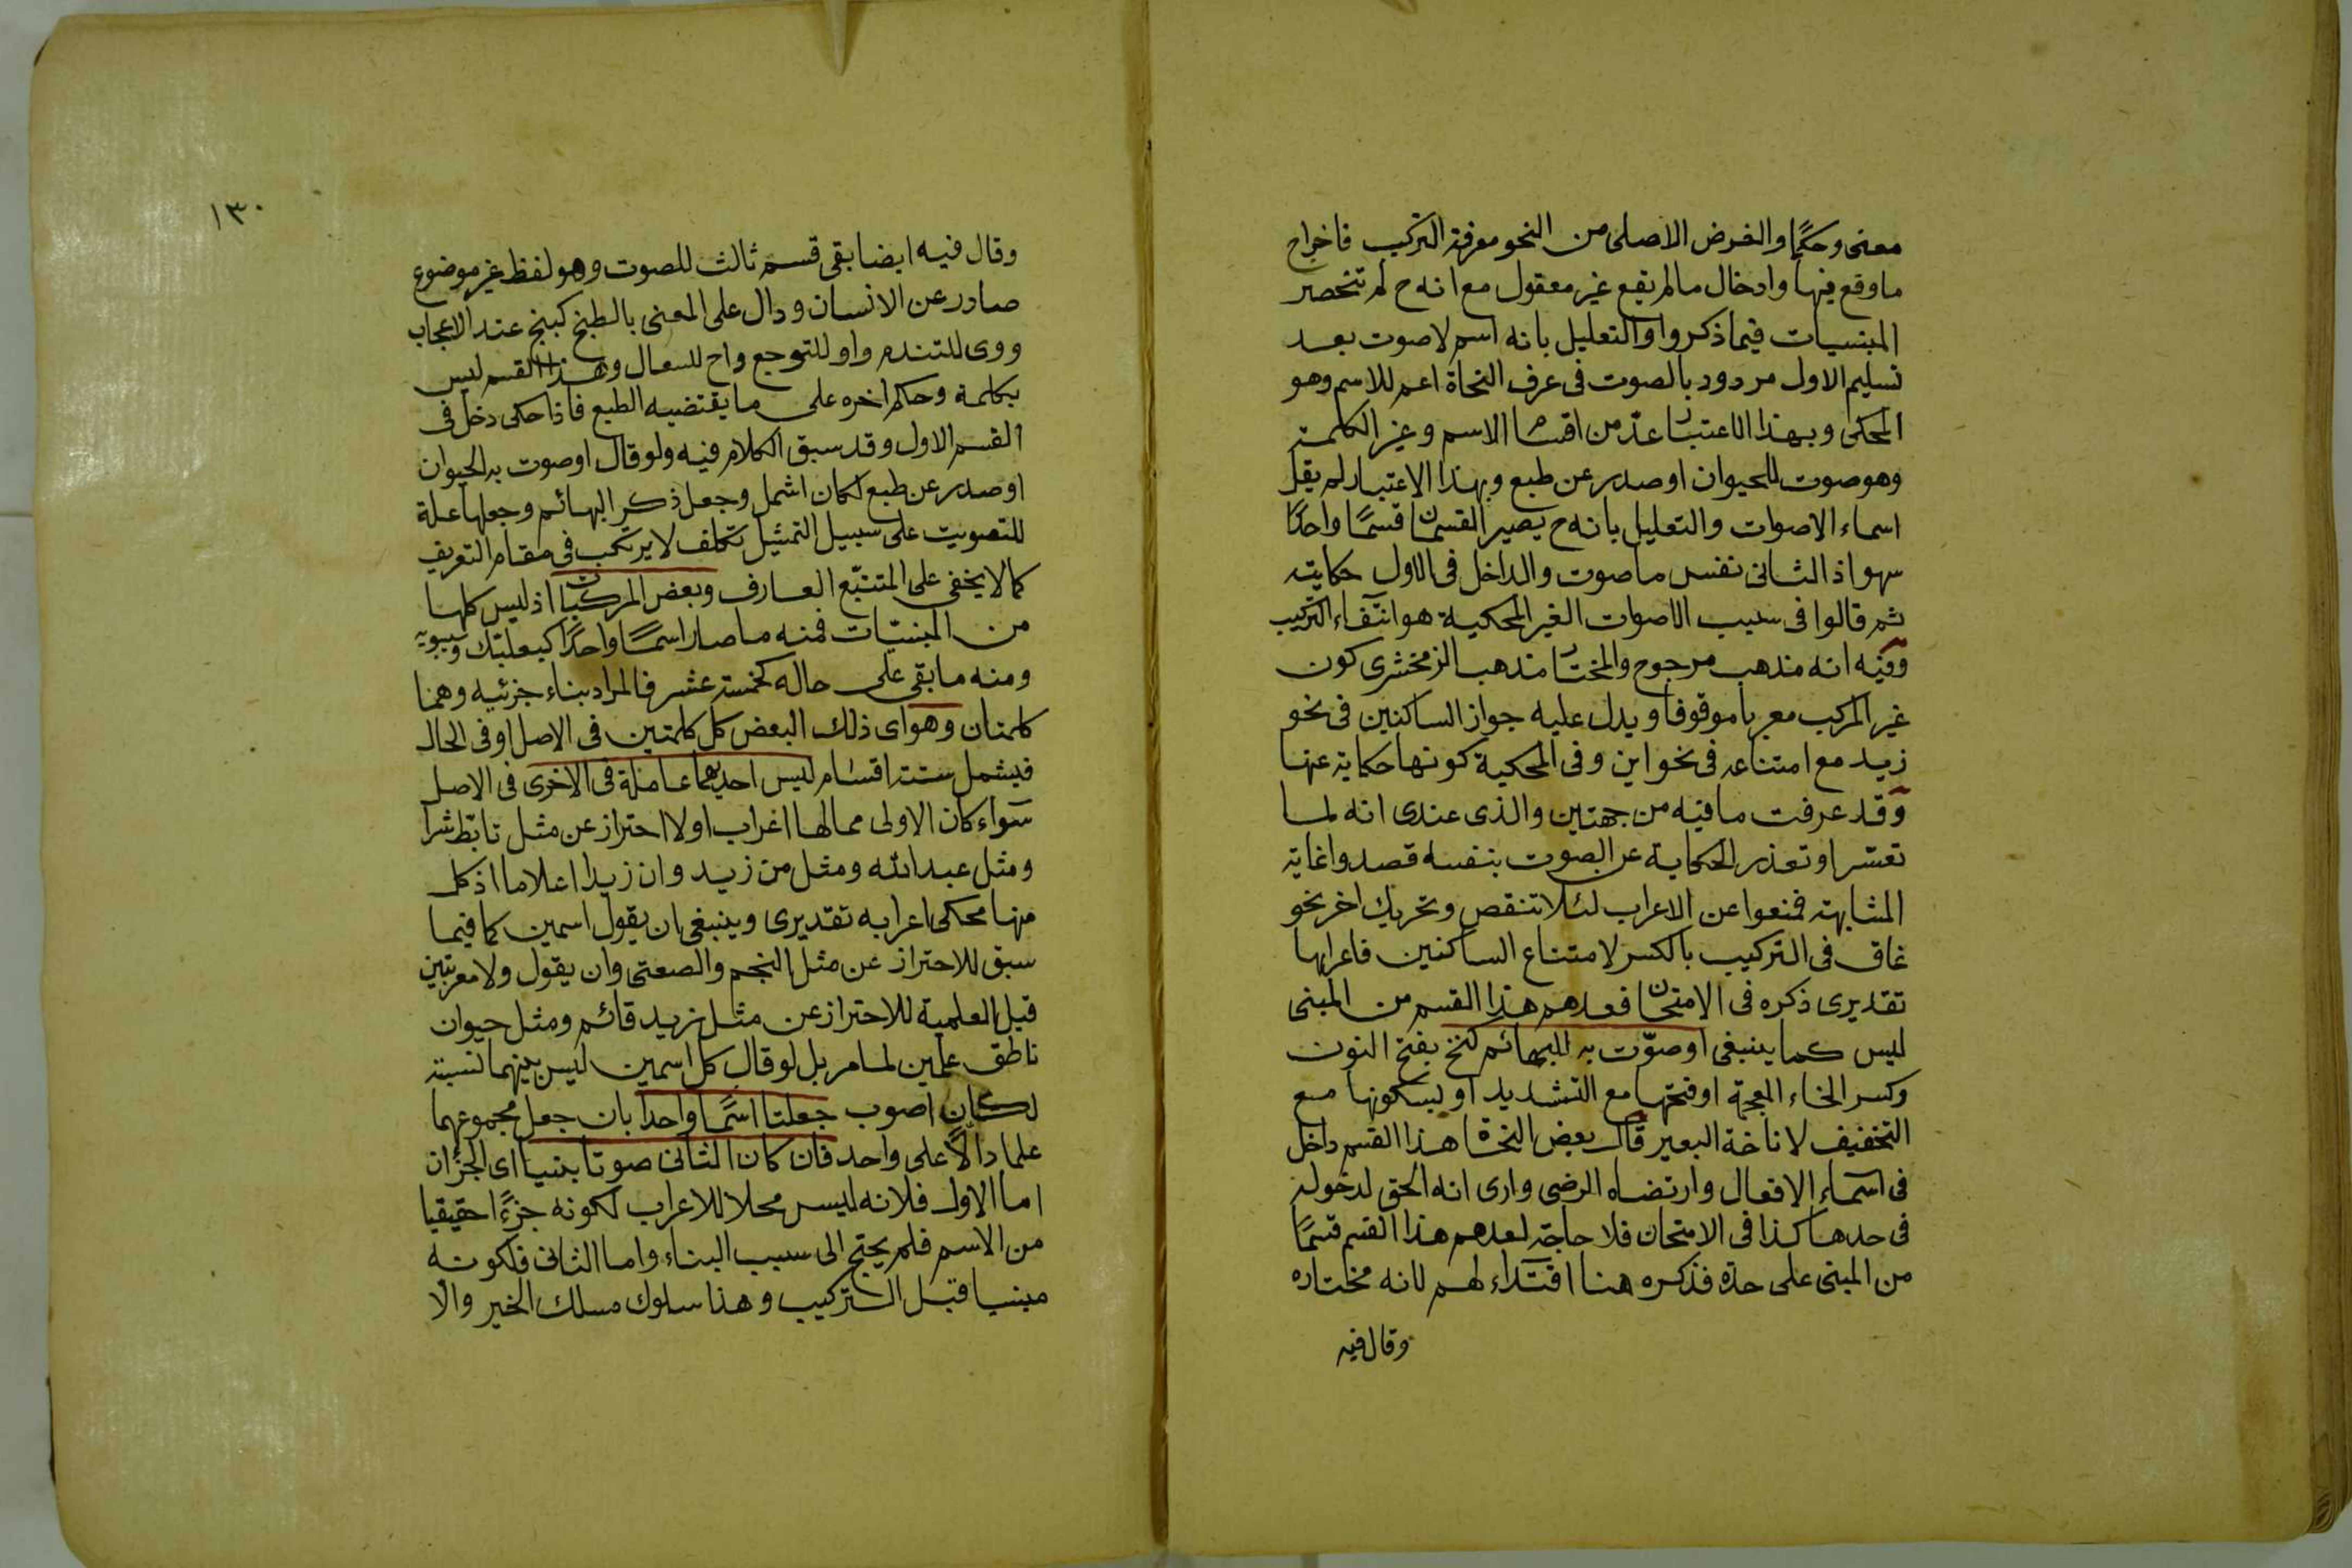 معنى وحكما والغرض الاصلى من النحو معرفة التركيب فاخراج
ما وقع فيها وادخال ما لم يقع غير معقول مع انه ح لم تنحصر
المبنيات فيما ذكروا والتعليل بانه اسم لا صوت بعد
تسليم الاول مردود بالصوت فى عرف النحاة اعم للاسم وهو
المحكى وبهذا الاعتبار عدّ من اقسام الاسم وغير الكلمة
وهو صوت للحيوان او صدر عن طبع وبهذا الاعتبار لم يقل
اسماء الاصوات والتعليل بانه ح يصير القسمان قسمًا واحدًا
سهو اذ الثانى نفس ما صوت والداخل فى الاول حكايته
ثم قالوا فى سبب الاصوات الغير المحكية هو انتفاء التركيب
وفيه انه مذهب مرجوح والمختار مذهب الزمخشرى كون
غير المركب معربا موقوفا ويدل عليه جواز الساكنين فى نحو
زيد مع امتناعه فى نحو اين وفى المحكية كونها حكاية عنها
وقد عرفت ما فيه من جهتين والذى عندى انه لما
تعسر او تعذر الحكاية عن الصوت بنفسه قصدوا غاية
المشابهة فمنعوا عن الاعراب لئلا تنقص وتحريك اخر نحو
غاق فى التركيب بالكسر لامتناع الساكنين فاعرابها
تقديرى ذكره فى الامتحان فعدهم هذا القسم من المبنى
ليس كما ينبغى او صوّت به للبهائم كنخ بفتح النون
وكسر الخاء المعجمة او فتحها مع التشديد او بسكونها مع
التخفيف لاناخة البعير قال بعض النحاة هذا القسم داخل
فى اسماء الافعال وارتضاه الرضى وارى انه الحق لدخوله
فى حدها كذا فى الامتحان فلا حاجة لعدهم هذا القسم قسمًا
من المبنى على حدة فذكره هنا اقتداء لهم لانه مختاره
وقال فيه
١٣٠
وقال فيه ايضا بقى قسم ثالث للصوت وهو لفظ غير موضوع
صادر عن الانسان ودال على المعنى بالطبع كبخ عند الاعجاب
ووى للتندم واو للتوجع واح للسعال وهذا القسم ليس
بكلمة وحكم اخره على ما يقتضيه الطبع فاذا حكى دخل فى
القسم الاول وقد سبق الكلام فيه ولو قال او صوت به الحيوان
او صدر عن طبع لكان اشمل وجعل ذكر البهائم وجعلها علة
للتصويت على سبيل التمثيل تكلف لا يرتكب فى مقام التعريف
كما لا يخفى على المتتبّع العارف وبعض المركبات اذ ليس كلها
من المبنيّات فمنه ما صار اسمًا واحدًا كبعلبك وسيبويه
ومنه ما بقى على حاله كخمسة عشر فالمراد بناء جزئيه وهما
كلمتان وهو اى ذلك البعض كل كلمتين فى الاصل او فى الحال
فيشمل ستة اقسام ليس احديهما عاملة فى الاخرى فى الاصل
سواء كان الاولى مما لها اعراب او لا احتراز عن مثل تابّط شرا
ومثل عبد الله ومثل من زيد وان زيدا اعلاما اذ كل
منها محكى اعرابه تقديرى وينبغى ان يقول اسمين كما فيما
سبق للاحتراز عن مثل النجم والصعق وان يقول ولا معربتين
قبل العلمية للاحتراز عن مثل زيد قائم ومثل حيوان
ناطق علمين لما مر بل لو قال كل اسمين ليس بينهما نسبة
لكان اصوب جعلتا اسمًا واحدا بان جعل مجموعهما
علما دالّا على واحد فان كان الثانى صوتا بنيا اى الجزأن
اما الاول فلانه ليس محلا للاعراب لكونه جزءًا حقيقيا
من الاسم فلم يحتج الى سبب البناء واما الثانى فلكونه
مبنيا قبل التركيب وهذا سلوك مسلك الخير والا